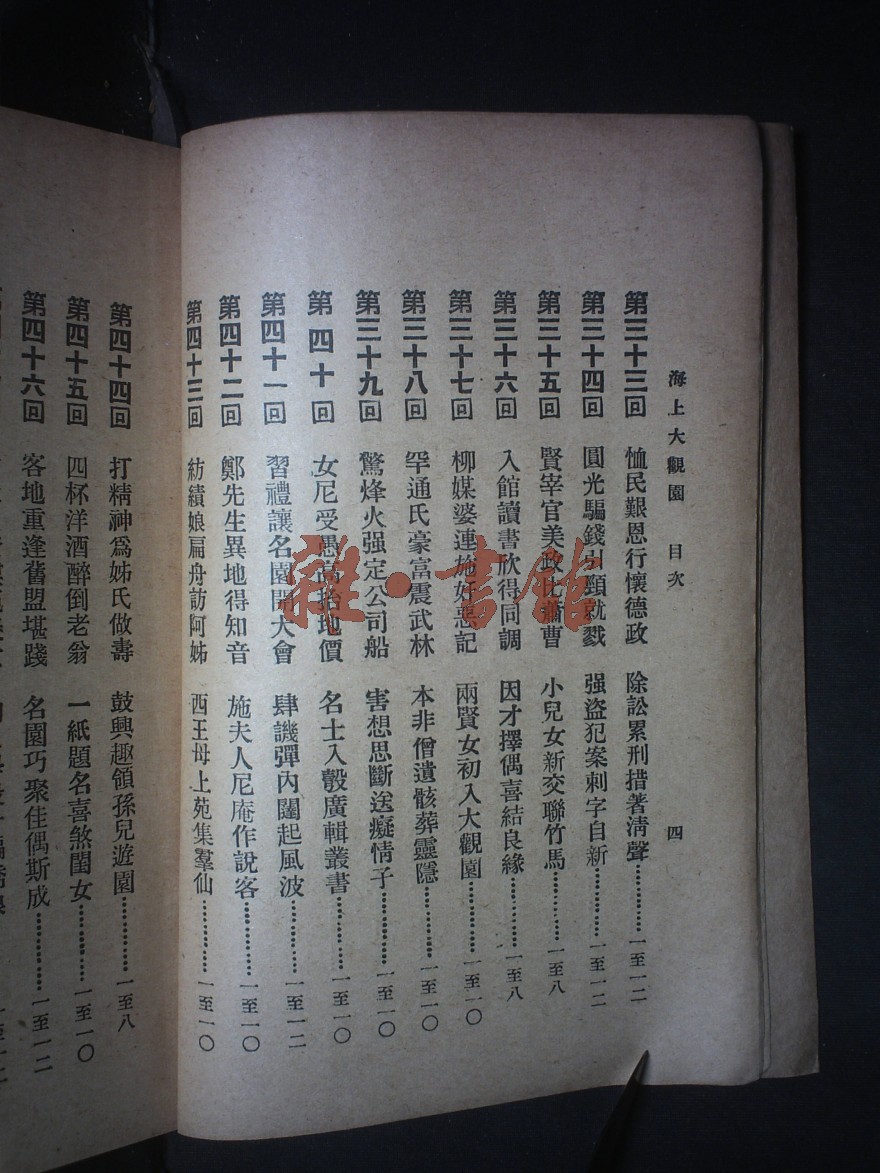 海上大觀園 目次 四
第三十三回 恤民艱恩行懷德政 除訟累刑措著淸聲…………一至一二
第三十四回 圓光騙錢引頸就戮 强盜犯案刺字自新…………一至一二
第三十五回 賢宰官美政比蕭曹 小兒女新交聯竹馬…………一至八
第三十六回 入館讀書欣得同調 因才擇偶喜結良緣…………一至八
第三十七回 柳媒婆連施奸惡記 兩賢女初入大觀園…………一至一〇
第三十八回 罕通氏豪富震武林 本非僧遺骸葬靈隱…………一至一〇
第三十九回 驚烽火强定公司船 害想思斷送癡情子…………一至一〇
第四十回 女尼受愚高抬地價 名士入彀廣輯叢書…………一至一〇
第四十一回 習禮讓名園開大會 肆譏彈內闈起風波…………一至一二
第四十二回 鄭先生異地得知音 施夫人尼庵作說客…………一至一〇
第四十三回 紡績娘扁舟訪阿姊 西王母上苑集羣仙…………一至一〇
第四十四回 打精神爲姊氏做壽 鼓興趣領孫兒遊園…………一至八
第四十五回 四杯洋酒醉倒老翁 一紙題名喜煞閨女…………一至一〇
第四十六回 客地重逢舊盟堪踐 名園巧聚佳偶斯成…………一至一二
雜·書館